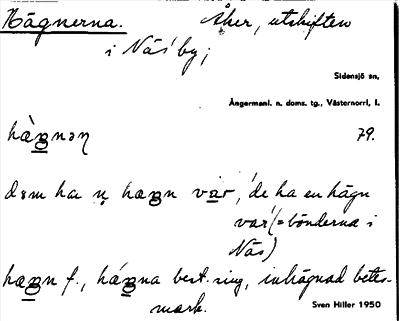 Hägnerna. Åker, utskiften
i Näs' by;
Sidensjö sn,
Ångermanl. n. doms. tg., Västernorrl. l.
79.
dɷm ha n̥ hægn var, 'de ha en hägn
var' (= bönderna i
Näs)
hægn f., hägna best. sing., inhägnad betes-
mark.
Sven Hiller 1950